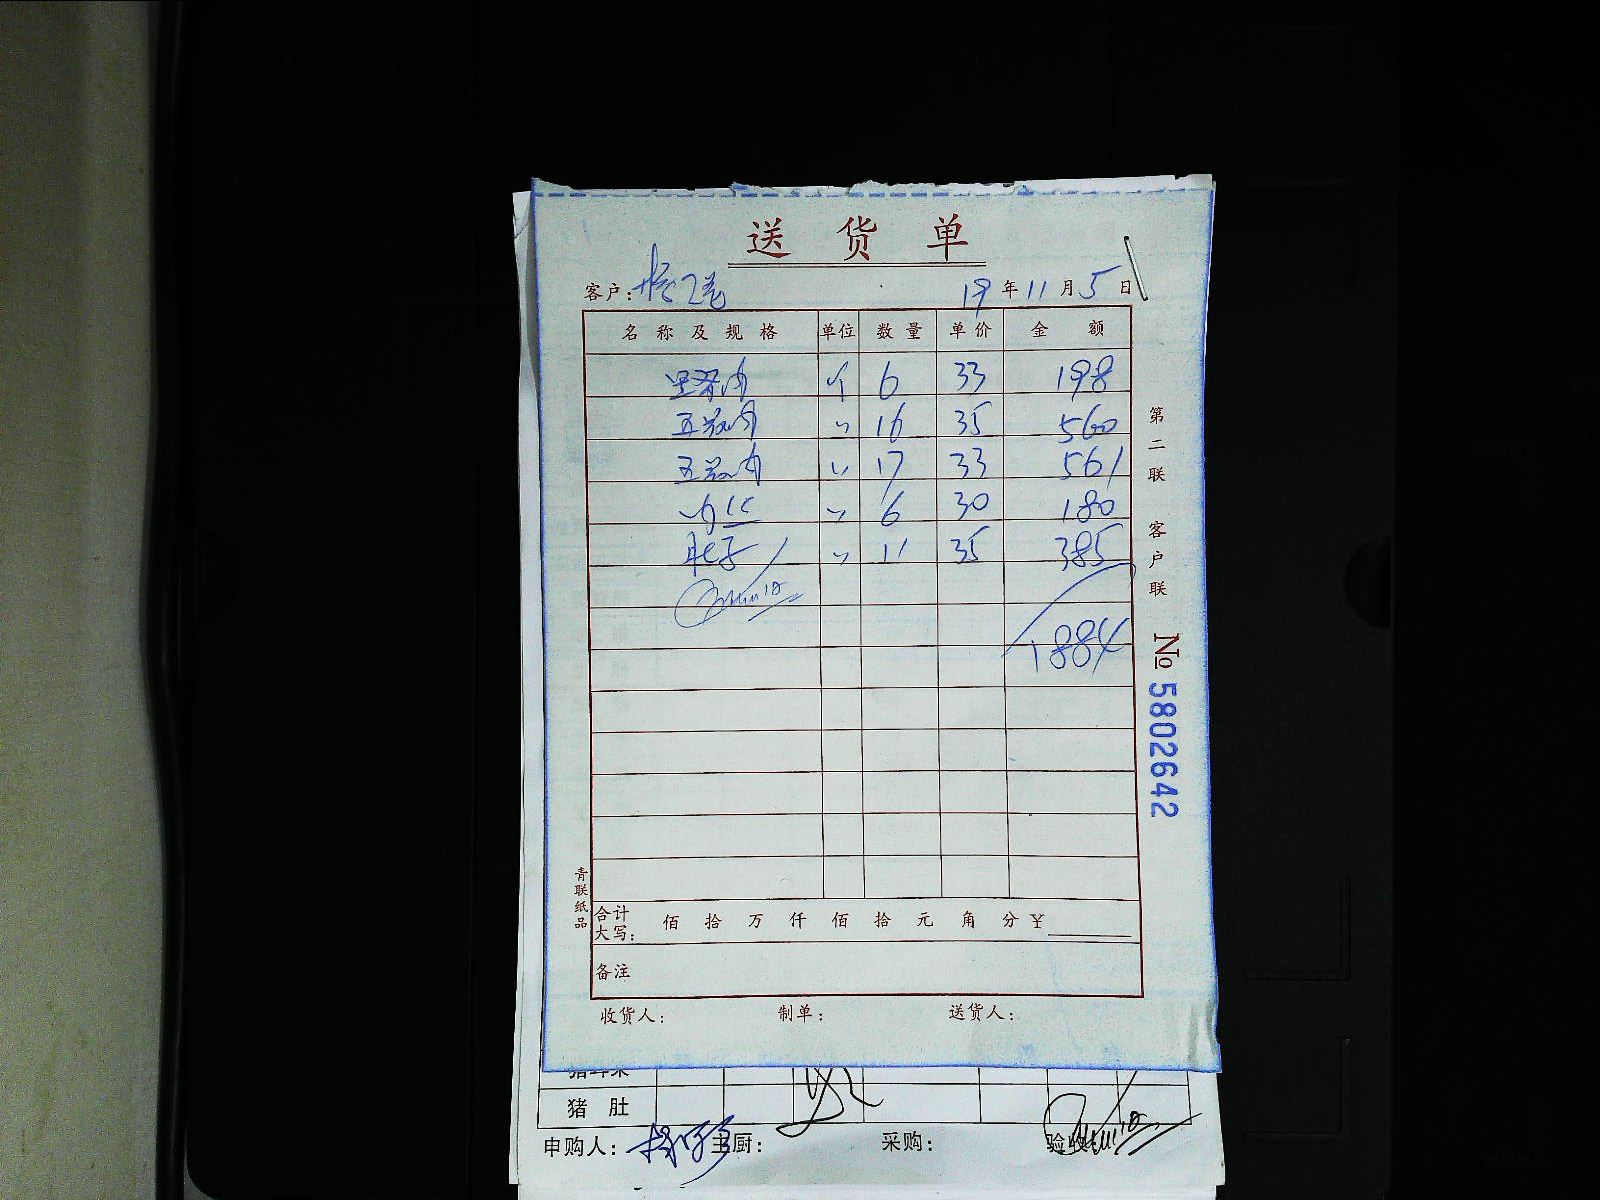 送 货 单
客户:
19 年 11 月 5 日
名 称 及 规 格 单位 数 量 单 价 金 额
里脊肉 斤 6 33 198
五花肉 〃 16 35 560
五花肉 〃 17 33 561
肉 〃 6 30 180
肚子 〃 11 35 385
1884
第二联 客户联
№ 5802642
青联纸品
合计大写: 佰 拾 万 仟 佰 拾 元 角 分 ¥
备注
收货人: 制单: 送货人:
猪 肚
申购人: 主厨: 采购: 验收